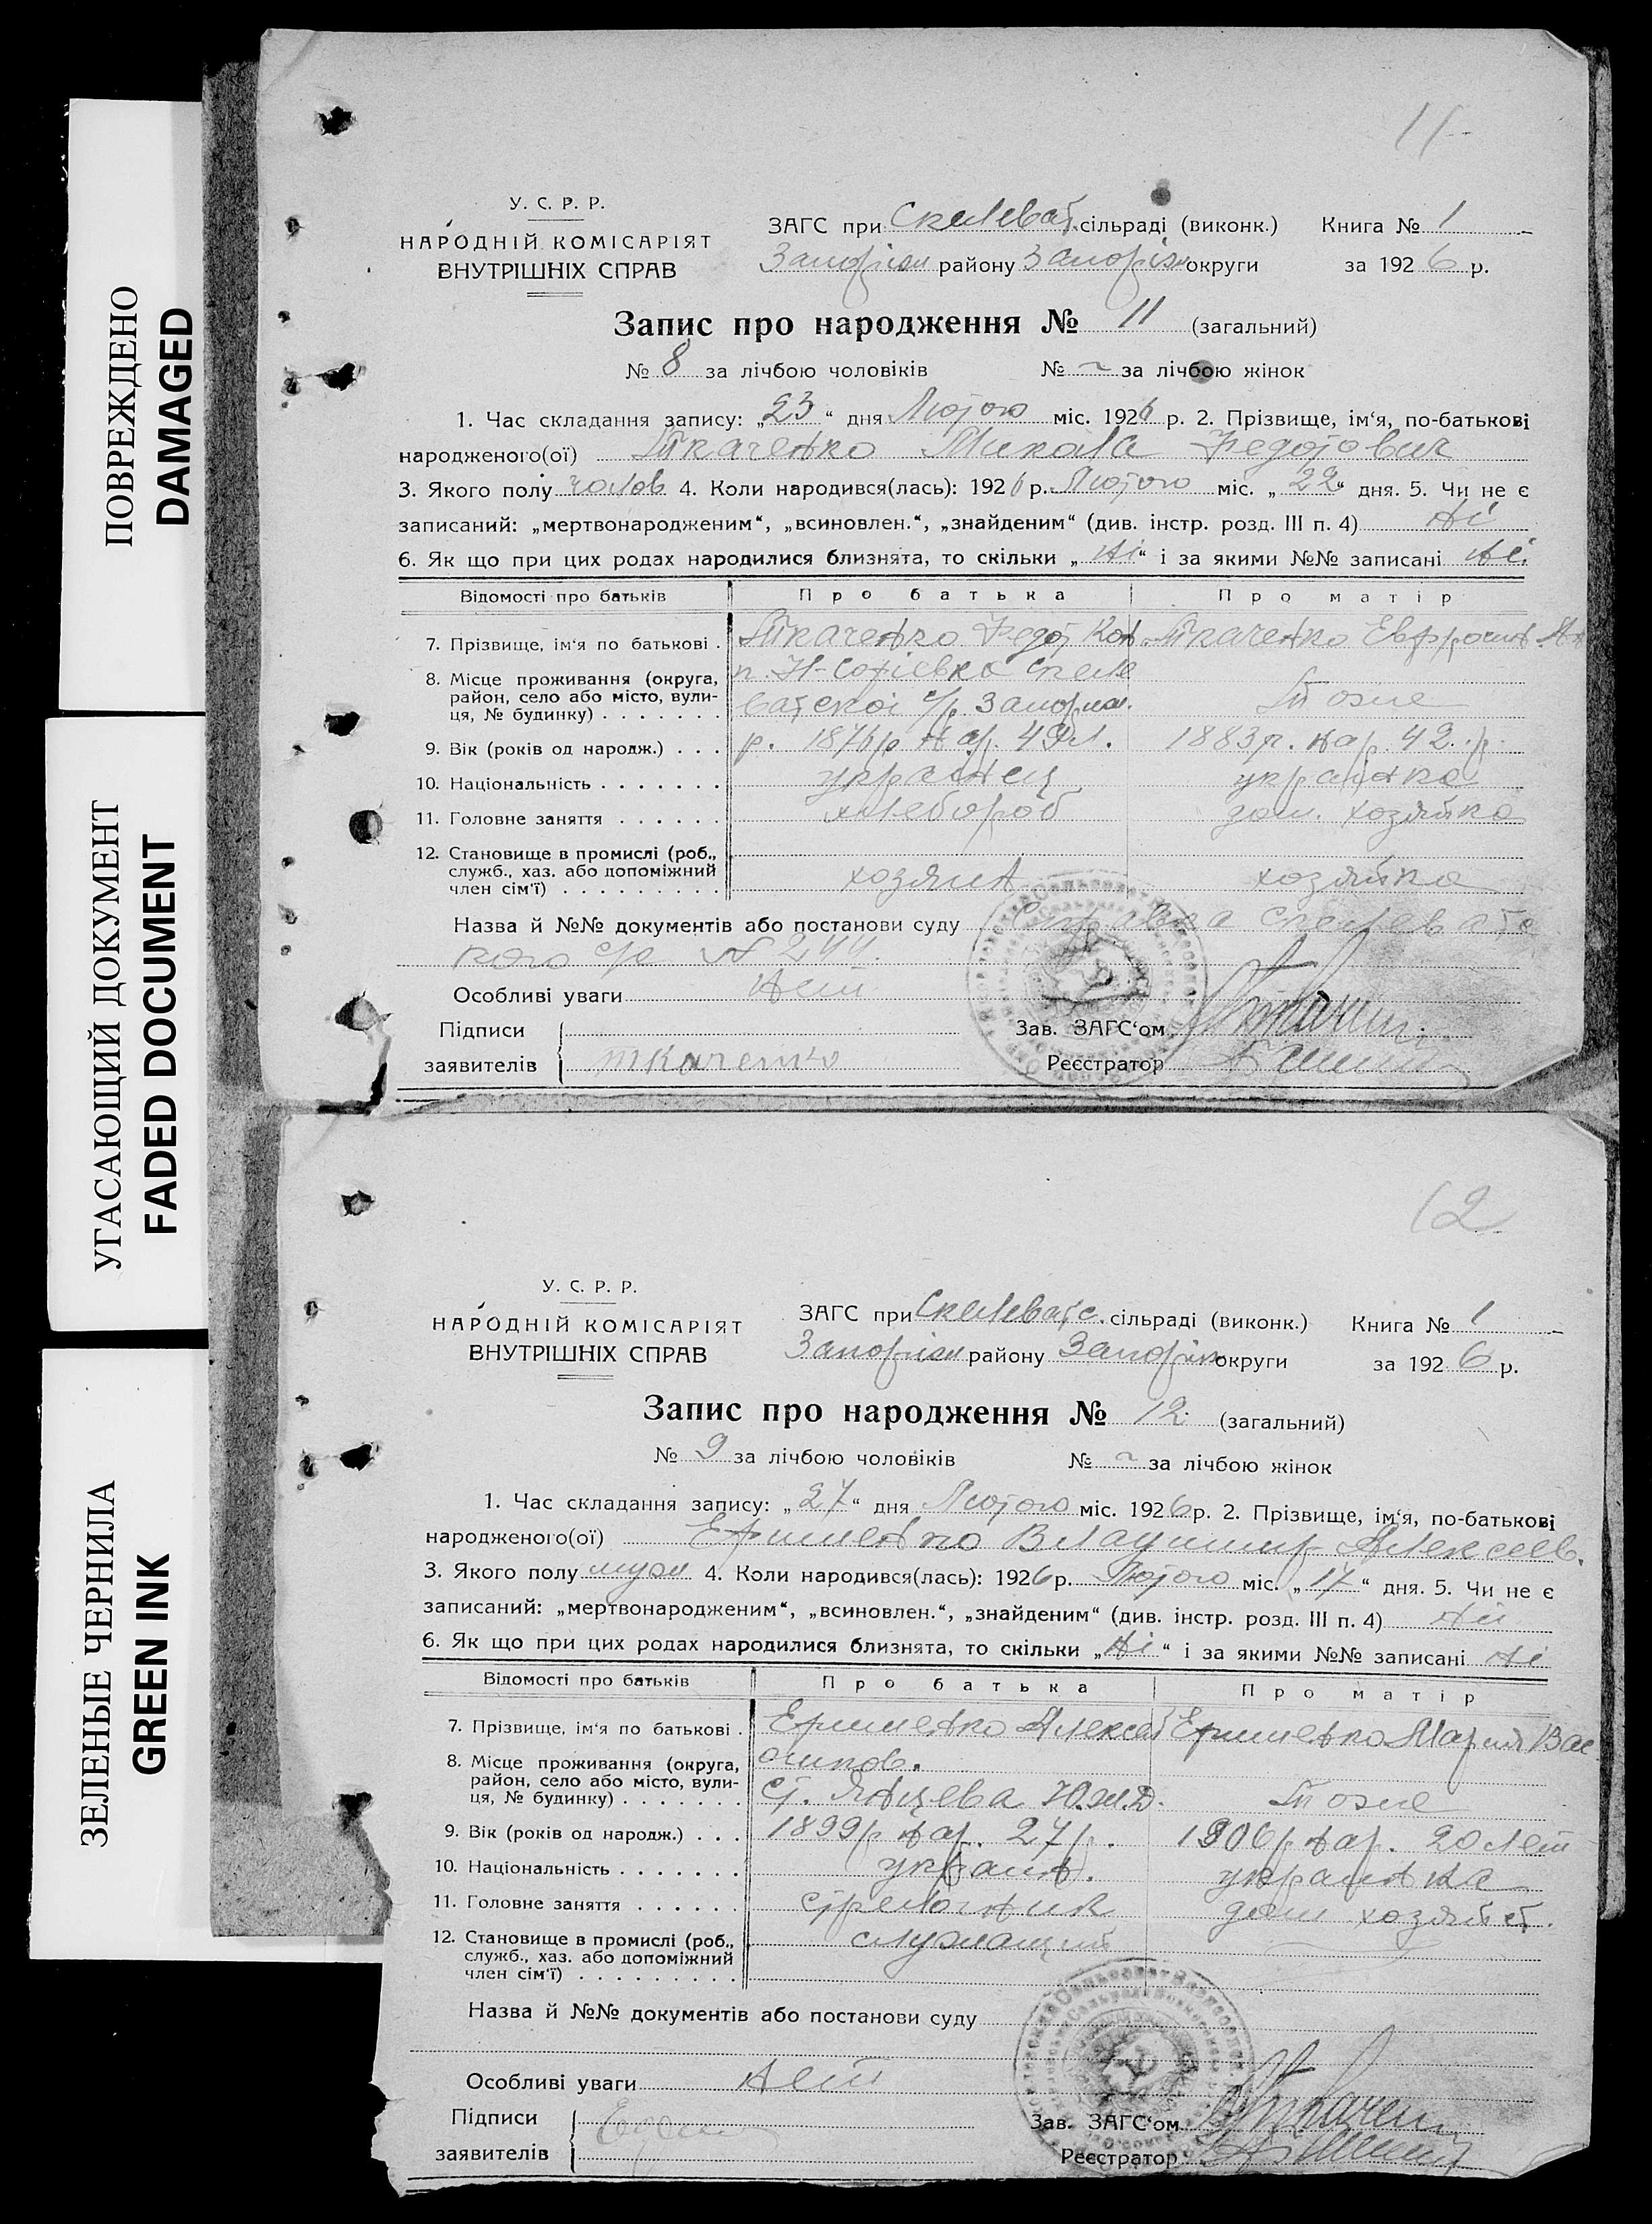 ПОВРЕЖДЕНО
DAMAGED
УГАСАЮЩИЙ ДОКУМЕНТ
FADED DOCUMENT
ЗЕЛЕНЫЕ ЧЕРНИЛА
GREEN INK
11
У. С. Р. Р.
НАРОДНІЙ КОМІСАРІЯТ
ВНУТРІШНІХ СПРАВ
ЗАГС при Скелеват. сільраді (виконк.) Книга № 1
Запоріжж району Запоріж округи за 1926 р.
Запис про народження № 11 (загальний)
№ 8 за лічбою чоловіків № ~ за лічбою жінок
1. Час складання запису: „23“ дня Лютого міс. 1926 р. 2. Прізвище, ім‘я, по-батькові
народженого(ої) Ткаченко Микола Федотович
3. Якого полу чолов 4. Коли народився(лась): 1926 р. Лютого міс. „22“ дня. 5. Чи не є
записаний: „мертвонародженим“, „всиновлен.“, „знайденим“ (див. інстр. розд. III п. 4) Ні
6. Як що при цих родах народилися близнята, то скільки „Ні“ і за якими №№ записані Ні.
Відомості про батьків Про батька Про матір
7. Прізвище, ім‘я по батькові . Ткаченко Федот Кон. Ткаченко Евфросин.
8. Місце проживання (округа, район, село або місто, вулиця, № будинку) . . . . . . . п. Н-Софіевка Скеле
ватскоі с/р. Запориж. Тоже
9. Вік (років од народж.) . . . р. 1876 р нар. 49 л. 1883 р. нар. 42 р.
10. Національність . . . . . . . украінец украінка
11. Головне заняття . . . . . . хлебороб дом. хозяйка
12. Становище в промислі (роб., служб., хаз. або допоміжний член сім‘ї) . . . . . . . . . хозяин хозяйка
Назва й №№ документів або постанови суду Справка Скелевато
кого с/р № 244.
Особливі уваги Нет
Підписи
заявителів ткаченко
Зав. ЗАГС‘ом
Реєстратор
12
У. С. Р. Р.
НАРОДНІЙ КОМІСАРІЯТ
ВНУТРІШНІХ СПРАВ
ЗАГС при Скелеватс. сільраді (виконк.) Книга № 1
Запоріжж району Запоріж округи за 1926 р.
Запис про народження № 12 (загальний)
№ 9 за лічбою чоловіків № ~ за лічбою жінок
1. Час складання запису: „27“ дня Лютого міс. 1926 р. 2. Прізвище, ім‘я, по-батькові
народженого(ої) Еришенко Владимир Алексеев.
3. Якого полу муж 4. Коли народився(лась): 1926 р. Лютого міс. „17“ дня. 5. Чи не є
записаний: „мертвонародженим“, „всиновлен.“, „знайденим“ (див. інстр. розд. III п. 4) Ні
6. Як що при цих родах народилися близнята, то скільки „Ні“ і за якими №№ записані Ні
Відомості про батьків Про батька Про матір
7. Прізвище, ім‘я по батькові . Еришенко Алексей Еришенко Мария Вас
осипов.
8. Місце проживання (округа, район, село або місто, вулиця, № будинку) . . . . . . . ст. Янцева Ю.ж.д. Тоже
9. Вік (років од народж.) . . . 1899 р нар. 27 р. 1906 р нар. 20 лет
10. Національність . . . . . . . украин. украинка
11. Головне заняття . . . . . . стрелочник дом хозяйст.
12. Становище в промислі (роб., служб., хаз. або допоміжний член сім‘ї) . . . . . . . . . служащий
Назва й №№ документів або постанови суду
Особливі уваги Нет
Підписи
заявителів
Зав. ЗАГС‘ом
Реєстратор